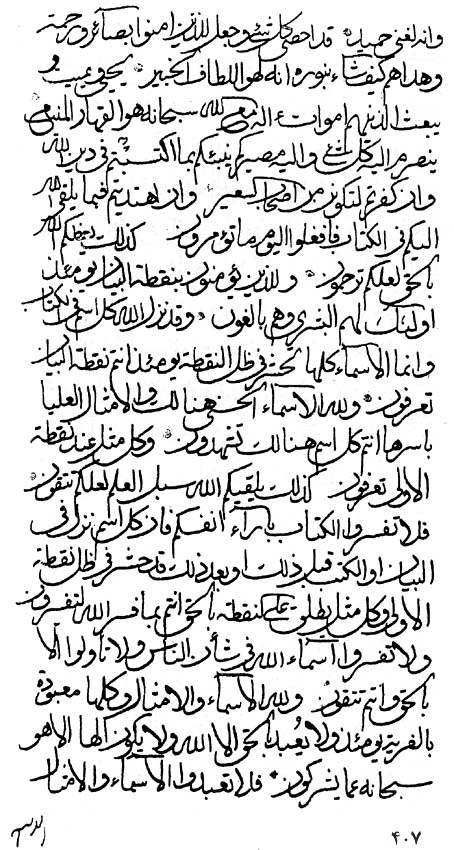 وانه لغني حميد * قد احصى كل شئ وجعل للذين امنوا بصائر ورحمة
وهداهم كيف شاء بنوره انه لهو اللطاف الخبير * يحيي ويميت و
يبعث الذينهم اموات مع الله سبحانه هو القهار المنيع
ينصر من اليه كل شئ واليه مصيركم ينبئكم بما اكتسبتم في دين الله
وان كفرتم لتكونن من اصحاب السعير * وان اهتديتم فيما يلقى الله
اليكم في الكتاب فافعلوا اليوم ما تؤمرون * كذلك يعظكم الله
بالحق لعلكم ترحمون * والذين يؤمنون بنقطة البيان يومئذ
اولئك لهم البشرى وهم بالغون * وقد نزل الله كل اسم في الكتاب
وانما الاسماء كلها تحشر في ظل النقطة يومئذ انتم نقطة البيان
تعرفون * ولله الاسماء الحسنى هنالك والامثال العليا
باسرها انتم كل اسم هنالك تشهدون * وكل مثل عند نقطة
الاولى تعرفون * كذلك يلقيكم الله سبل العلم لعلكم تتقون *
فلا تفسروا الكتاب بآراء انفسكم فان كل اسم نزل في
البيان او الكتب قبل ذلك او بعد ذلك قد حشر في ظل نقطة
الاولى وكل مثل يطلق على النقطة بالحق انتم بما فسر الله لتفسرون
ولا تفسروا اسماء الله في شأن الناس ولا تأولوا الا
بالحق وانتم تتقون * ولله الاسماء والامثال وكلها معبودة
بالفرية يومئذ ولا يعبد بالحق الا الله ولا يكون الها الا هو
سبحانه عما يشركون * فلا تعبدوا الاسماء والامثال
۴۰۷